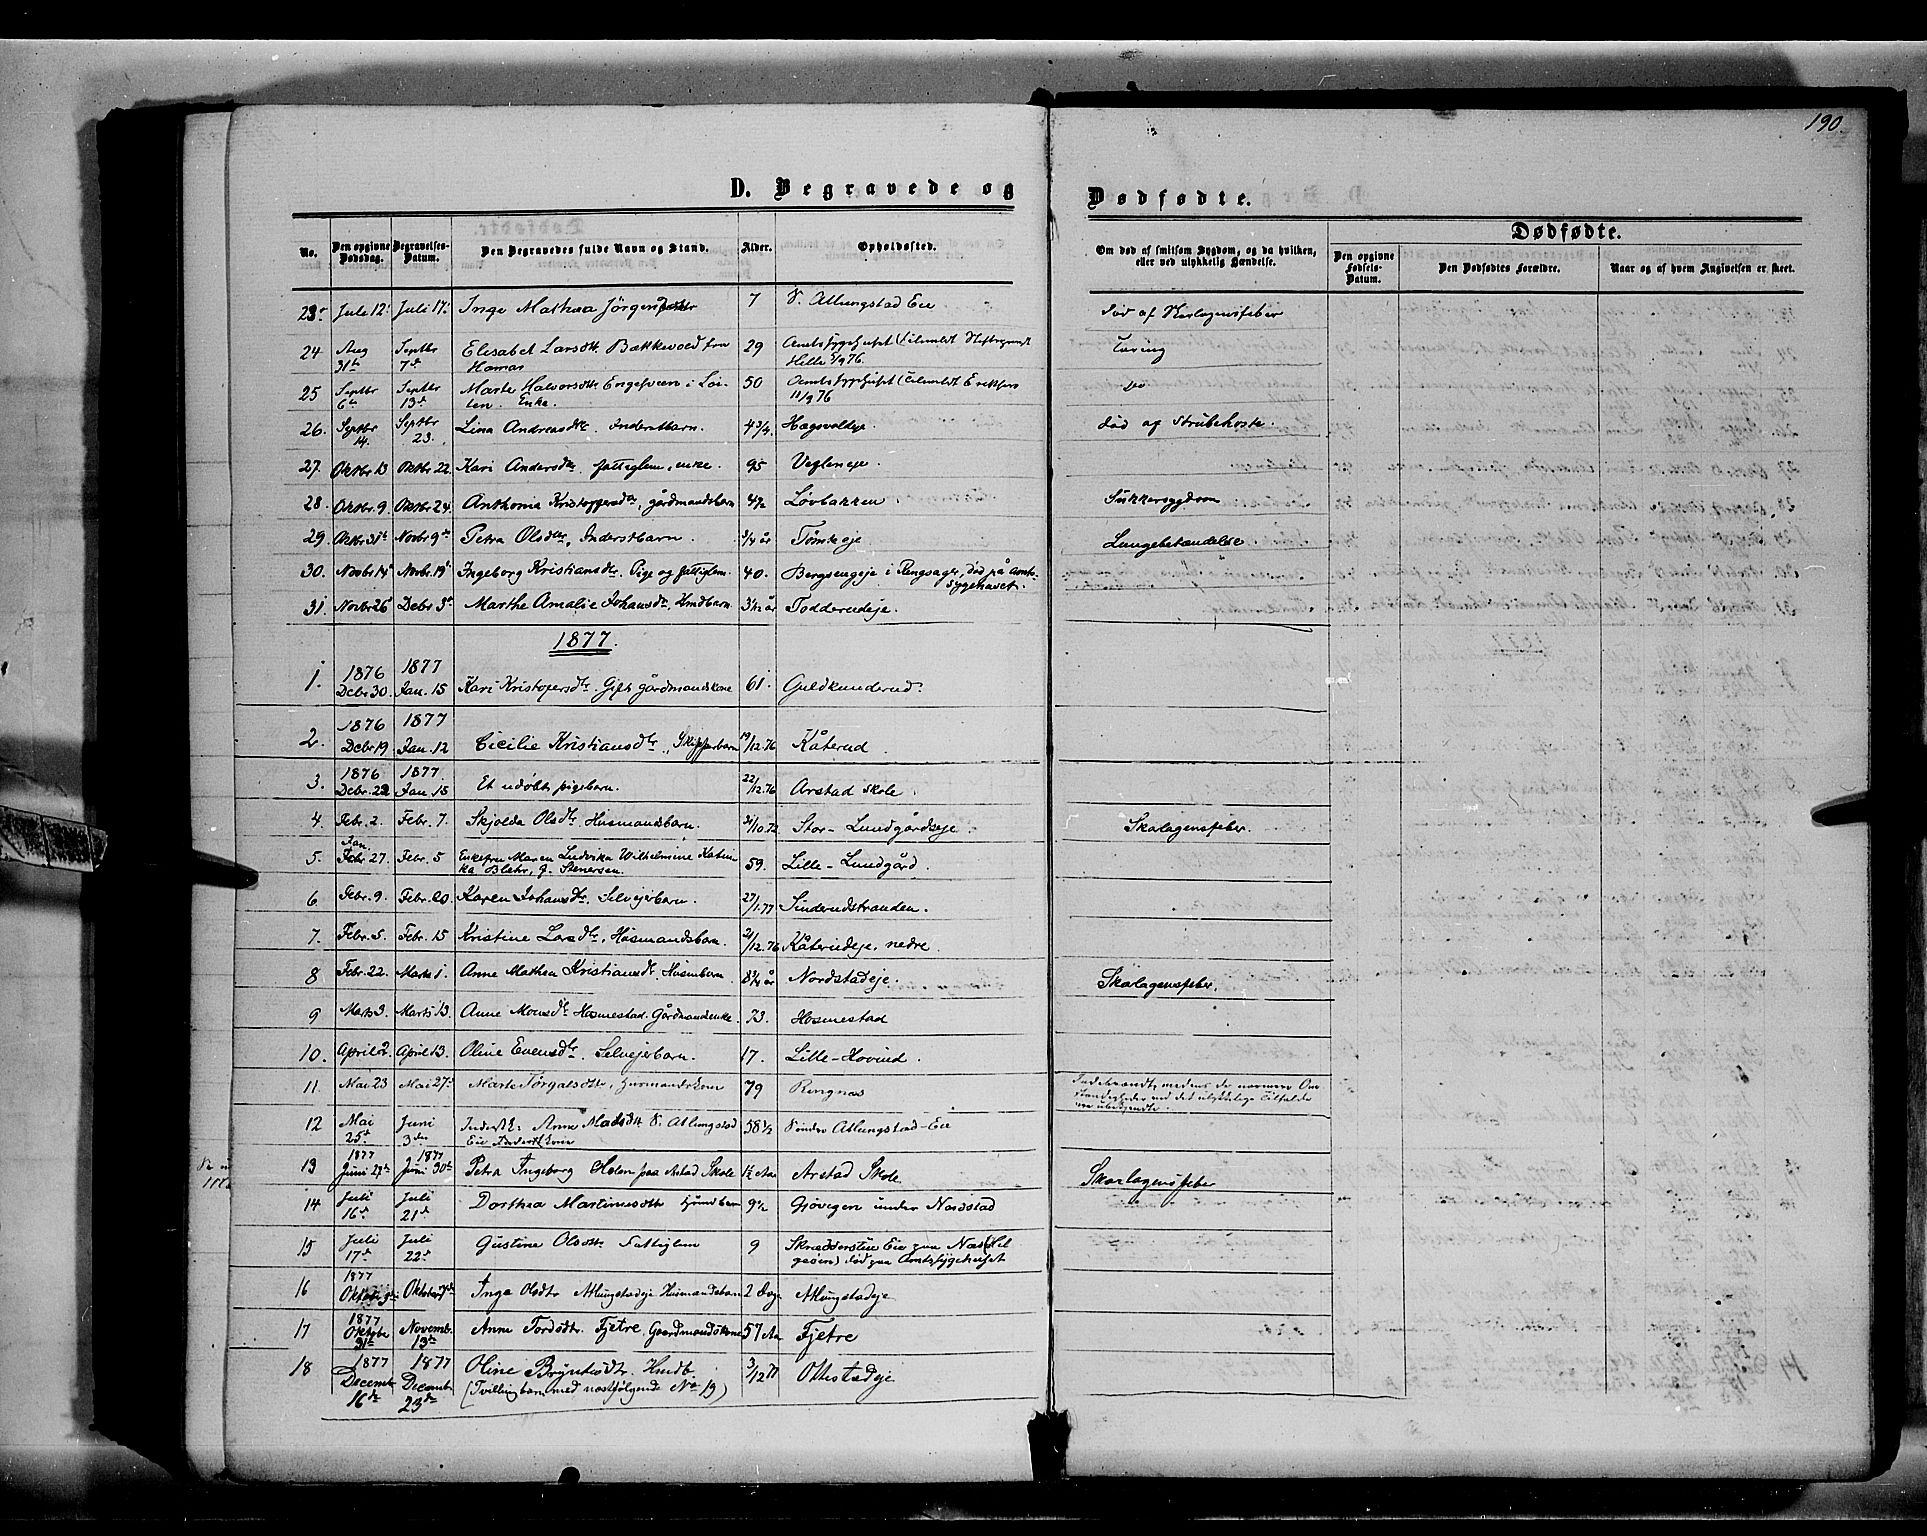 190
D. Begravede og Dødfødte.
Dødfødte.
No. Den opgivne Dødsdag. Begravelses-Datum. Den Begravedes fulde Navn og Stand. Alder. Opholdssted. Om død af smitsom Sygdom, og da hvilken, eller ved ulykkelig Hændelse. Den opgivne Fødsels-Datum. Den Dødfødtes Forældre. Naar og af hvem Angivelsen er skeet.
23 Juli 12 Juli 17 Inge Mathea Jörgensdatter 7 S. Atlungstad Eie død af Skarlagensfeber
24 Aug 31te Septbr 7de Elisabet Larsdtr. Bækkevold fra Hamar 29 Amtssygehuset
25 Septbr 6te Septbr 13de Marte Halvorsdtr. Engesveen i Löiten. Enke. 50 Amtssygehuset 11/9 76 do
26. Septbr 14. Septbr 23. Lina Andreasdtr. Inderstbarn. 4 3/4. Hagsvoldeje. død af Strubehoste.
27. Oktbr. 13 Oktbr. 22. Kari Andersdtr. fattiglem, enke. 95 Vegleneje.
28. Oktbr. 9. Oktbr. 24. Anthonia Kristoffersdtr, gårdmandsbarn 4 1/2 Løvbakken Sukkersygdom
29. Oktbr 31te Novbr 9de Petra Olsdtr, Inderstbarn. 3/4 år Tømteeje. Lungebetændelse
30. Novbr 14 Novbr. 19 Ingeborg Kristiansdtr. Pige og fattiglem. 40. Bergsengeje i Ringsager, død på Amtssygehuset.
31 Novbr 26 Debr 3de Marthe Amalie Johansdtr, Hmdbarn. 3 1/2 år Todderudeje.
1877.
1. 1876 Debr 30. 1877 Jan. 15 Kari Kristofersdtr. Gift gårdmandskone 61. Guldkunderud.
2. 1876 Debr 19 1877 Jan. 12 Cicilie Kristiansdtr., Skipperbarn 19/12.76 Kåterud.
3. 1876 Debr. 22 1877. Jan. 15 Et udøbt pigebarn. 22/12.76 Arstad skole.
4 Febr. 2. Febr. 7. Skjolda Olsdtr. Husmandsbarn. 31/10.72 Stor-Lundgårdseje Skarlagensfeber.
5. Jan. Febr. 27. Febr. 5 Enkefru Maren Ludvika Wilhelmine Katinka Blehr, f. Stenersen. 59. Lille-Lundgård.
6 Febr. 9. Febr. 20. Karen Johansdtr, Selvejerbarn. 27/1.77 Sinderudstranden.
7. Febr. 5. Febr. 15 Kristine Larsdtr, Husmandsbarn. 21/12.76 Kåterudeje, nedre.
8 Febr. 22. Marts 1. Anne Mathea Kristiansdtr. Husmbarn 8 3/4 år Nordstadeje. Skarlagensfeber.
9 Marts 3. Marts 13. Anne Monsdtr Hosmestad. Gårdmandsenke 73. Hosmestad
10. April 2. April 13. Oline Evensdtr. Selvejerbarn. 17. Lille-Hovind.
11. Mai 23 Mai 27de Marte Torgalsdtr, Husmandskone 79 Ringnæs Indebrændt, medens de nærmere Omstændigheder ved det ulykkelige Tilfælde ere ubekjendte.
12 Mai 25de Juni 3die Inderstk: Anne Madsdtr S. Atlungstad Eie 58 1/2 Søndre Atlungstad-Eie
13 1877 Juni 27de 1877 Juni 30te Petra Ingeborg Holen paa Arstad Skole 1 1/2 Aar Arstad Skole Skarlagensfeber
14 Juli 16de Juli 21de Dorthea Martinusdtr Husmdbarn 9 1/2 Gjøvegen under Nordstad
15 Juli 17de Juli 22de Gustine Olsdtr Fattiglem 9 Skrædderstuen Eie paa Næs (Helgøen) død paa Amtssygehuset
16 1877 Oktober Oktober 7de Inga Olsdtr Atlungstadeje Husmandsbarn 2 Dage Atlungstadeje
17 1877 Oktober 31te Novemb. 13de Anne Tordsdtr. Fjetre. Gaardmandskone 57 Aar Fjetre
18 1877 Decembr 16de 1877 Decembr 23de Oline Bryntesdtr. Hmdb (Tvillingbarn med næstfølgende No 19) 3/12 77 Ottestadeje